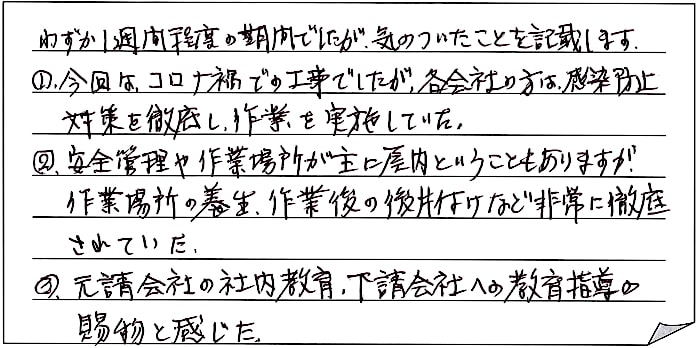 わずか1週間程度の期間でしたが、気のついたことを記載します.
①.今回は、コロナ禍での工事でしたが、各会社の方は、感染防止
対策を徹底し、作業を実施していた。
②.安全管理や作業場所が主に屋内ということもありますが、
作業場所の養生、作業後の後片付けなど非常に徹底
されていた.
③.元請会社の社内教育、下請会社への教育指導の
賜物と感じた.